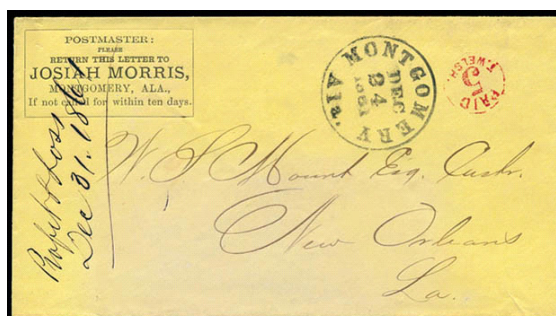 POSTMASTER:
PLEASE
RETURN THIS LETTER TO
JOSIAH MORRIS,
MONTGOMERY, ALA.,
If not called for within ten days.
MONTGOMERY Ala.
DEC
24
1861
PAID
5
T. WELSH
Profit & Loss
Dec 31. 1861
W. S. Mount Esq. Cashr.
New Orleans
La.